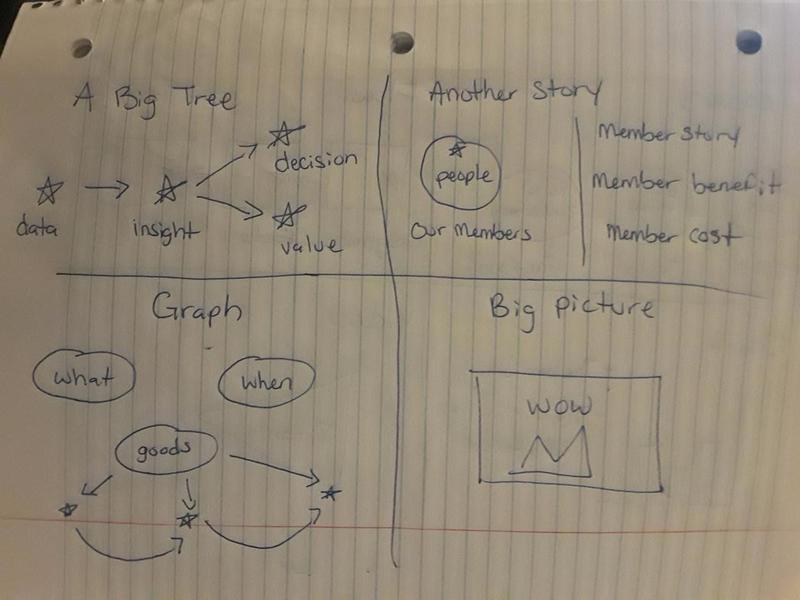 A Big Tree
decision
data
insight
value
Another Story
people
Our Members
Member Story
Member benefit
Member cost
Graph
what
when
goods
Big Picture
WOW